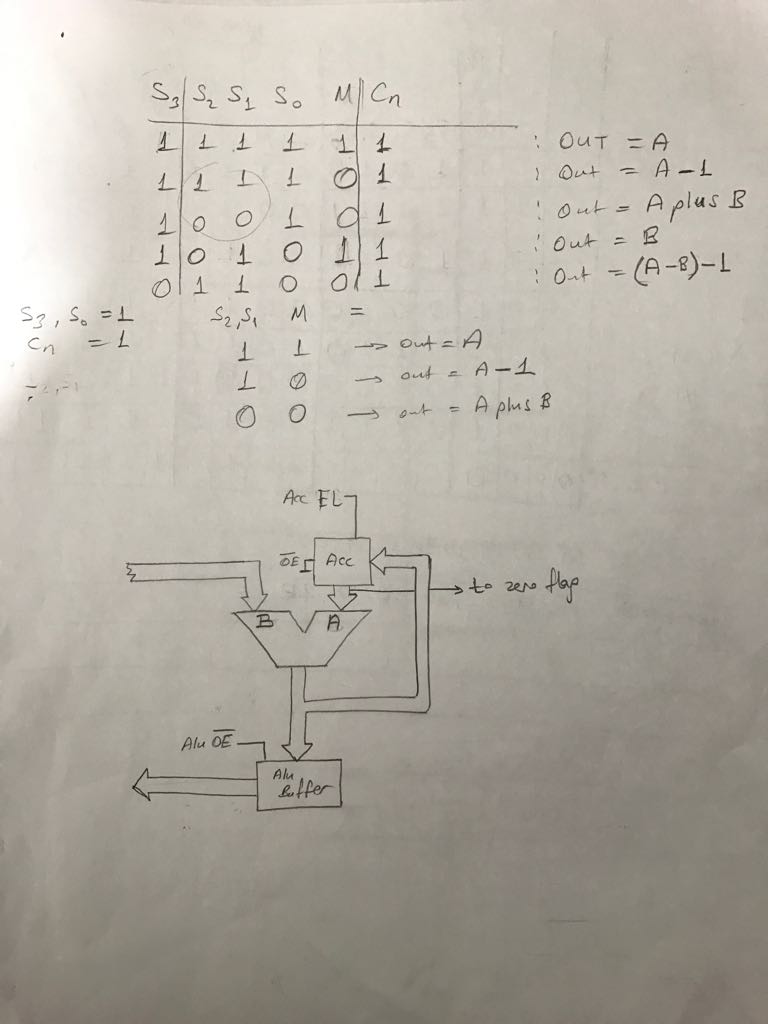 S3 S2 S1 S0 M Cn
1 1 1 1 1 1 : OUT = A
1 1 1 1 0 1 : Out = A-1
1 0 0 1 0 1 : Out = A plus B
1 0 1 0 1 1 : Out = B
0 1 1 0 0 1 : Out = (A-B)-1
S3, S0 = 1 S2, S1 M =
Cn = 1 1 1 → out = A
1 0 → out = A-1
0 0 → out = A plus B
Acc EL
OE Acc
to zero flag
B A
Alu OE
Alu
Buffer